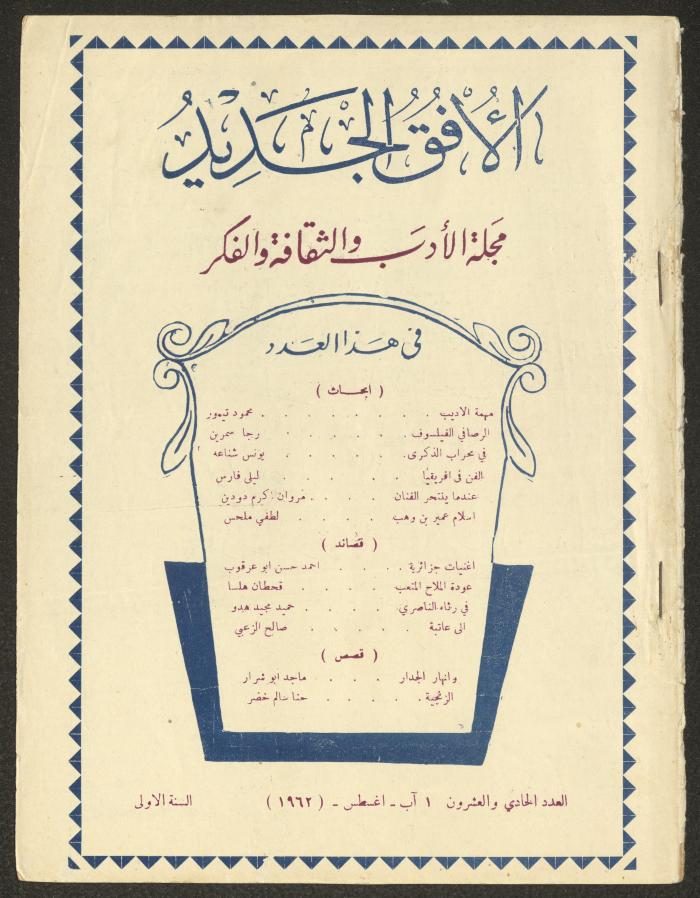 الأُفُقُ الجَدِيدُ
مجَلة الأدبَ والثقافة والفكر
في هذا العدد
( ابحـاث )
مهمة الاديب . . . . . . . . محمود تيمور
الرصافي الفيلسوف . . . . . . رجا سمرين
في محراب الذكرى . . . . . . يونس شناعه
الفن في افريقيا . . . . . . ليلى فارس
عندما ينتحر الفنان . . . . مروان اكرم دودين
اسلام عمير بن وهب . . . . لطفي ملحس
( قصائد )
اغنيات جزائرية . . . . احمد حسن ابو عرقوب
عودة الملاح المتعب . . . . . قحطان هلسا
في رثاء الناصري . . . . . حميد مجيد هدو
الى عاتبة . . . . . . صالح الزعبي
( قصص )
وانهار الجدار . . . . ماجد ابو شرار
الزنجية . . . . . حنا سالم خضر
العدد الحادي والعشرون ١ آب ـ اغسطس ـ ( ١٩٦٢ ) السنة الاولى